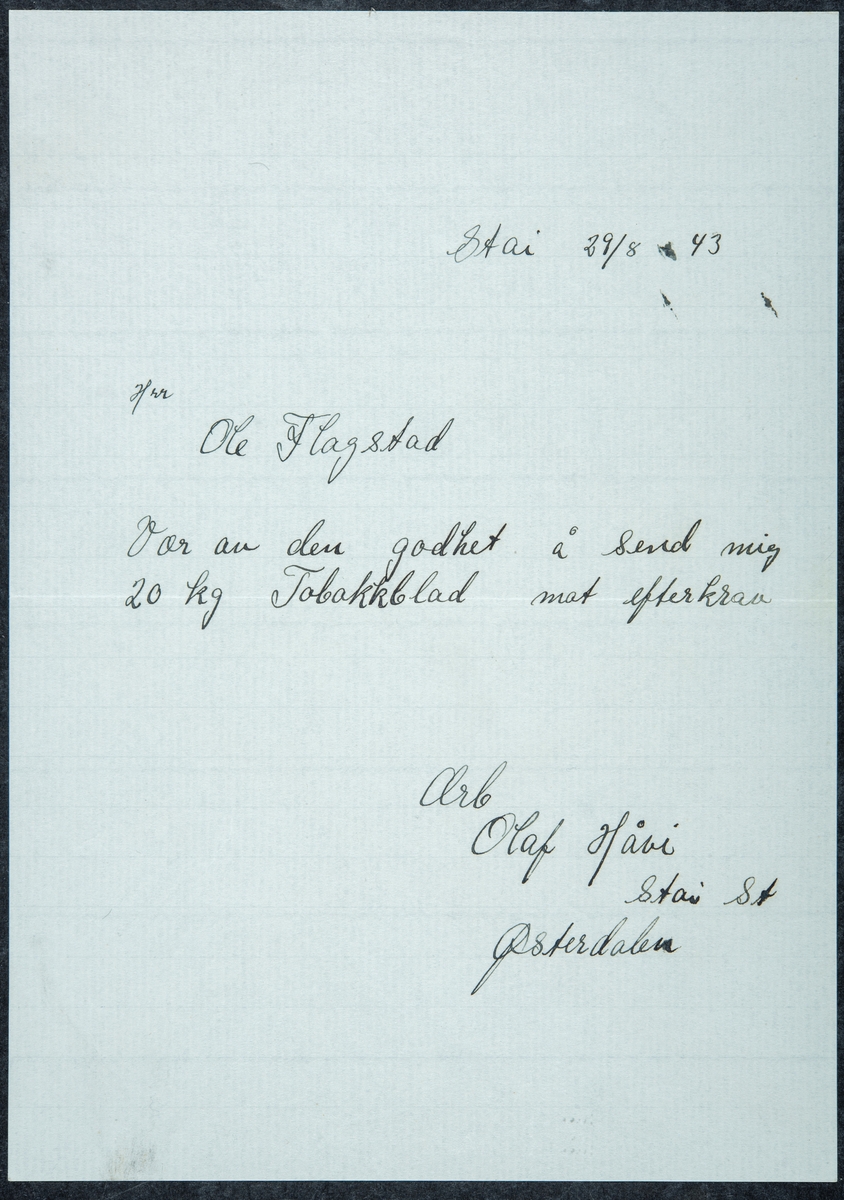 Stai 29/8 43
Hrr
Ole Flagstad
Vær av den godhet å send mig
20 kg Tobakkblad mot efterkrav
Ærb
Olaf Håvi
Stai St
Østerdalen